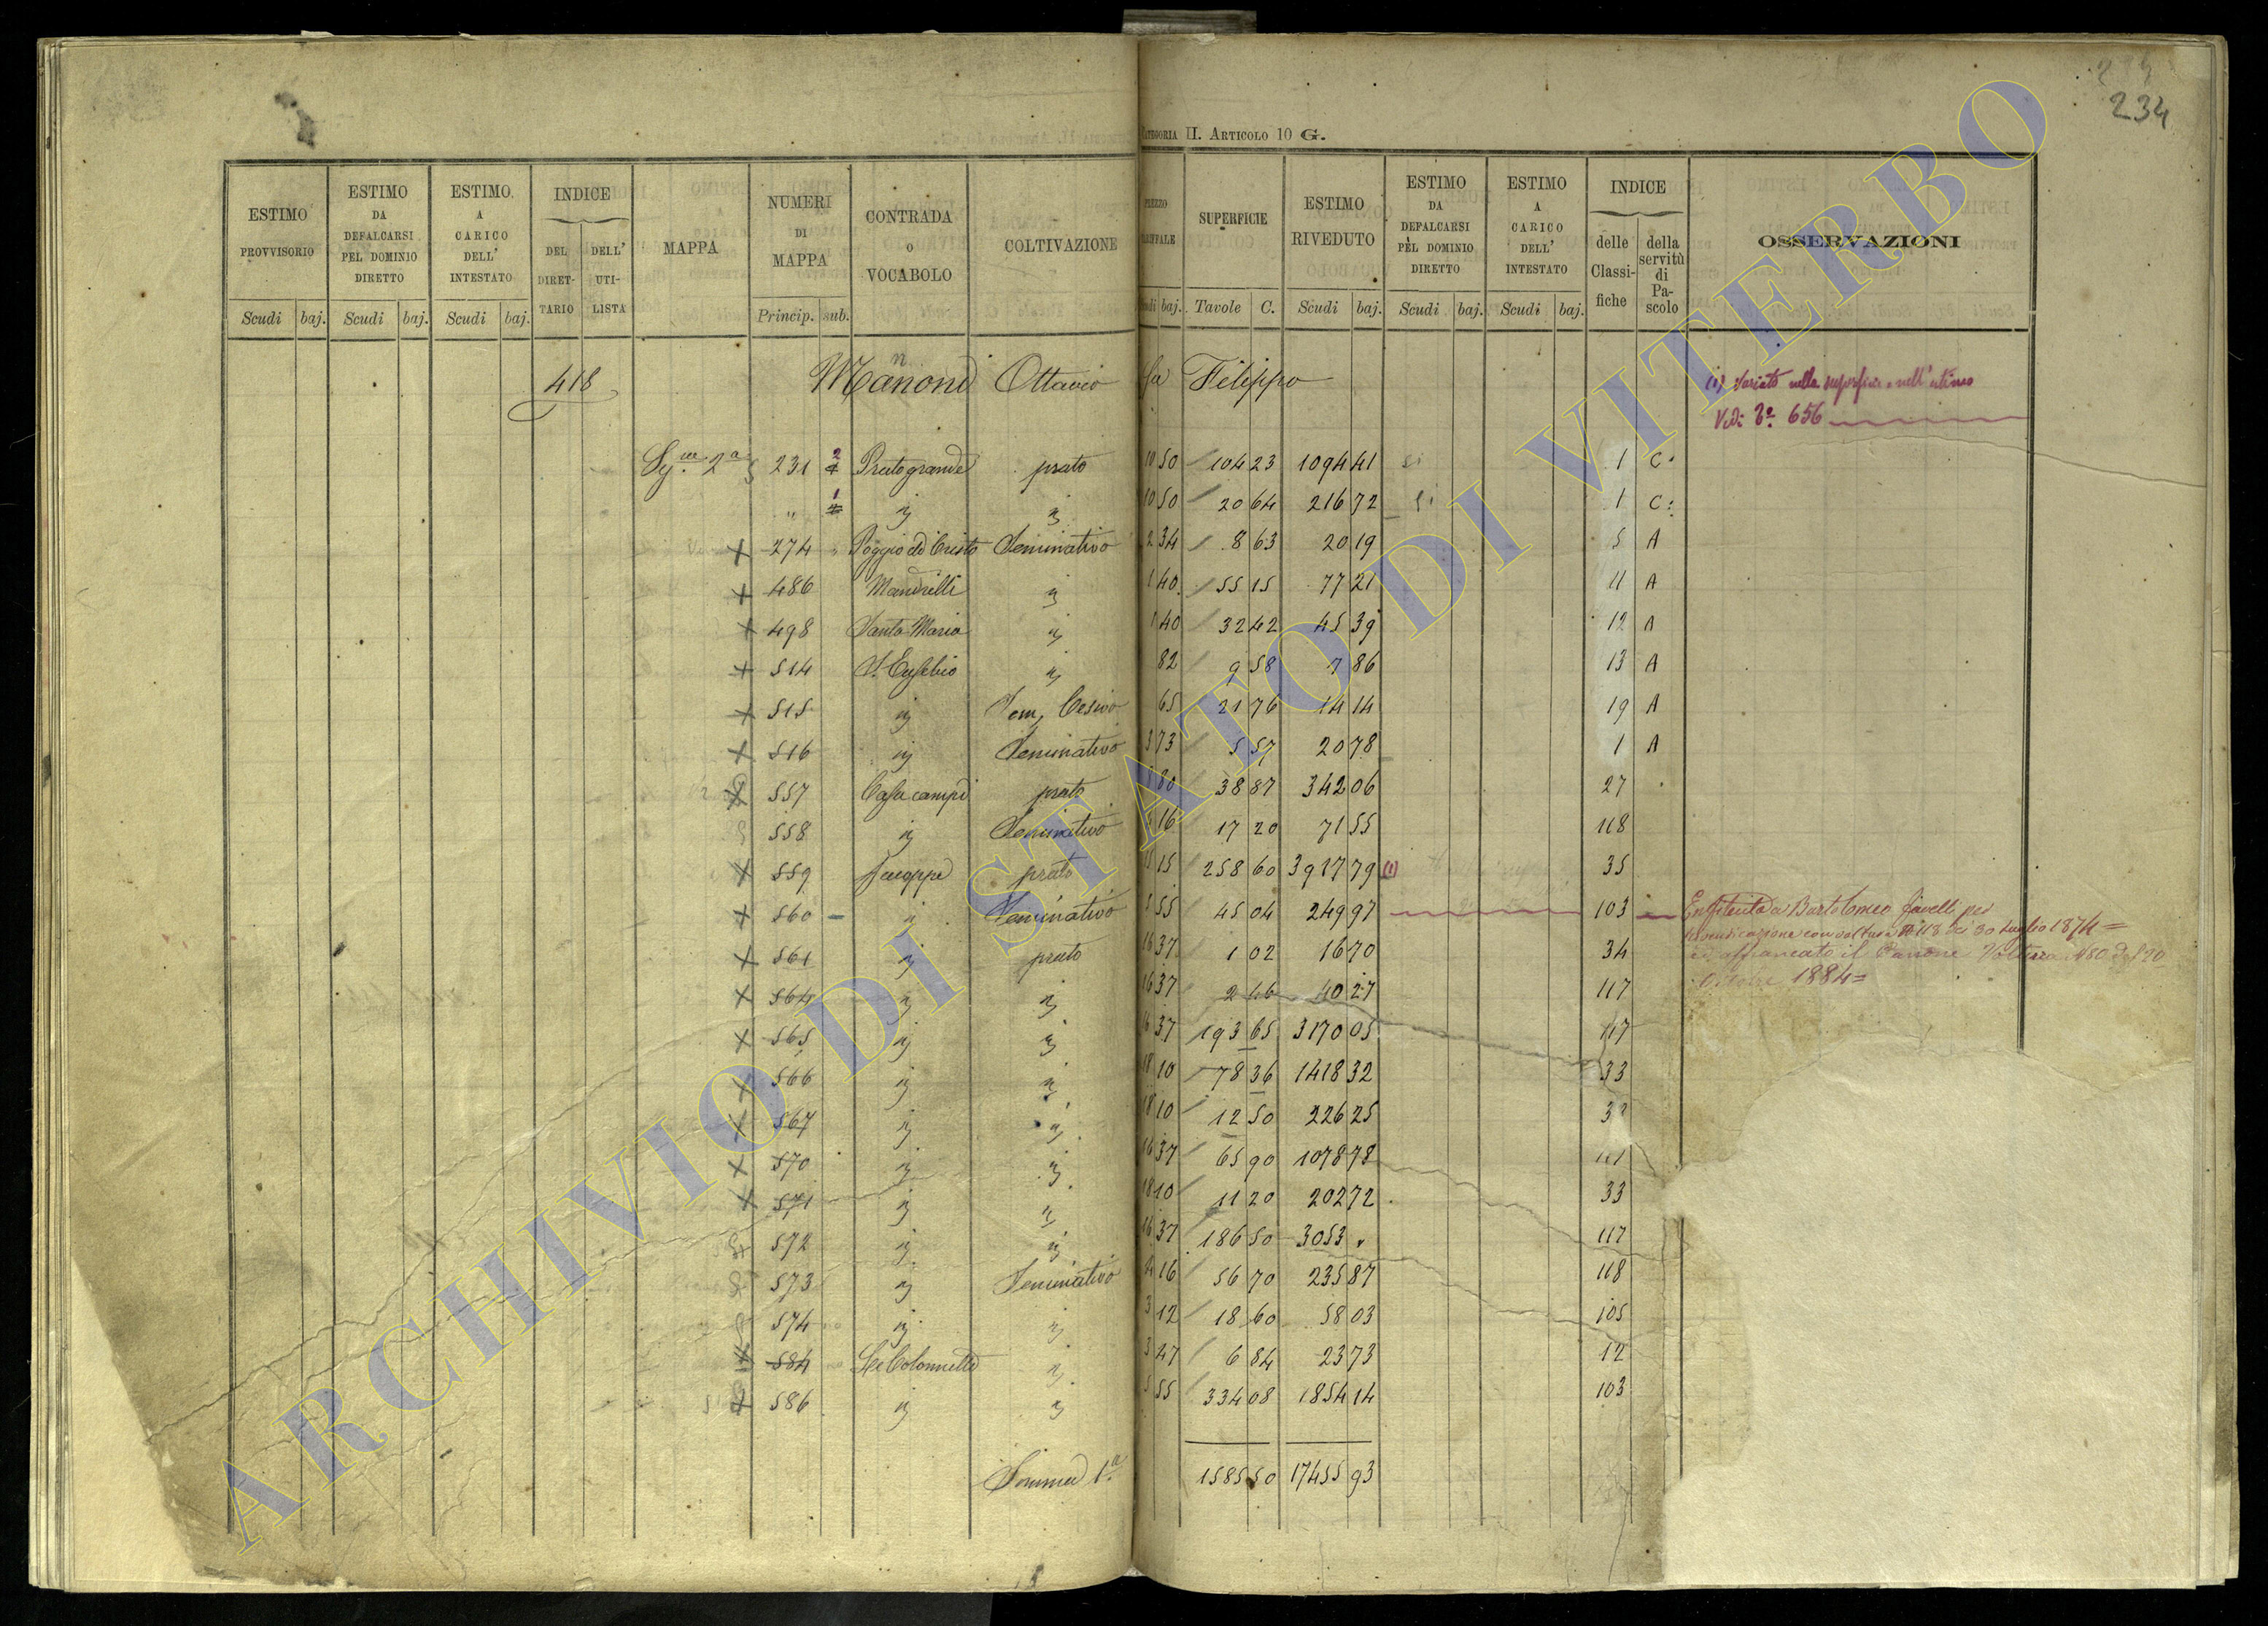 234
CATEGORIA II. ARTICOLO 10 G.
ESTIMO PROVVISORIO | ESTIMO DA DEFALCARSI PEL DOMINIO DIRETTO | ESTIMO A CARICO DELL' INTESTATO | INDICE DEL DIRETTARIO DELL' UTILISTA | MAPPA | NUMERI DI MAPPA | CONTRADA O VOCABOLO | COLTIVAZIONE | SUPERFICIE | ESTIMO RIVEDUTO | ESTIMO DA DEFALCARSI PEL DOMINIO DIRETTO | ESTIMO A CARICO DELL' INTESTATO | INDICE delle Classifiche della servitù di Pascolo | OSSERVAZIONI
Scudi baj. Scudi baj. Scudi baj. Princip. sub. baj. Tavole C. Scudi baj. Scudi baj. Scudi baj.
418 Mannoni Ottavio fu Filippo
(1) Variato nella superficie e nell'estimo
Vedi 656
2a 231 2 Pratogrande prato 10 50 104 23 1094 41 si 1 C.
" 1 " " 10 50 20 64 216 72 si 1 C.
x 274 " Poggio del Cristo Seminativo 2 34 8 63 20 19 5 A
x 486 Mandrelli " 1 40 55 15 77 21 11 A
x 498 Santa Maria " 1 40 32 42 45 39 12 A
x 514 S. Eusebio " 82 9 58 7 86 13 A
x 515 " Sem. Cesivo 65 21 76 14 14 19 A
x 516 " Seminativo 3 73 5 57 20 78 1 A
x 557 Casacampi prato 80 38 87 342 06 27
558 " Seminativo 16 17 20 71 55 118
x 559 prato 15 15 258 60 3917 79 (1) 35
x 560 " Seminativo 55 45 04 249 97 103 Enfiteuta a Bartolomeo per
x 561 " prato 16 37 1 02 16 70 34
con voltura 30 Luglio 1874
ed affrancato il Canone Voltura 480
1884
x 564 " " 16 37 2 46 40 27 117
x 565 " " 16 37 193 65 3170 05 117
x 566 " " 18 10 78 36 1418 32 33
x 567 " " 18 10 12 50 226 25
x 570 " " 16 37 65 90 1078 78
x 571 " " 18 10 11 20 202 72 33
572 " " 16 37 186 50 3053 " 117
573 " Seminativo 4 16 56 70 235 87 118
574 " " 3 12 18 60 58 03 105
x 584 Le Colonnette " 3 47 6 84 23 73 12
x 586 " " 5 55 334 08 1854 14 103
Somma 1a 1585 50 17455 93
ARCHIVIO DI STATO DI VITERBO